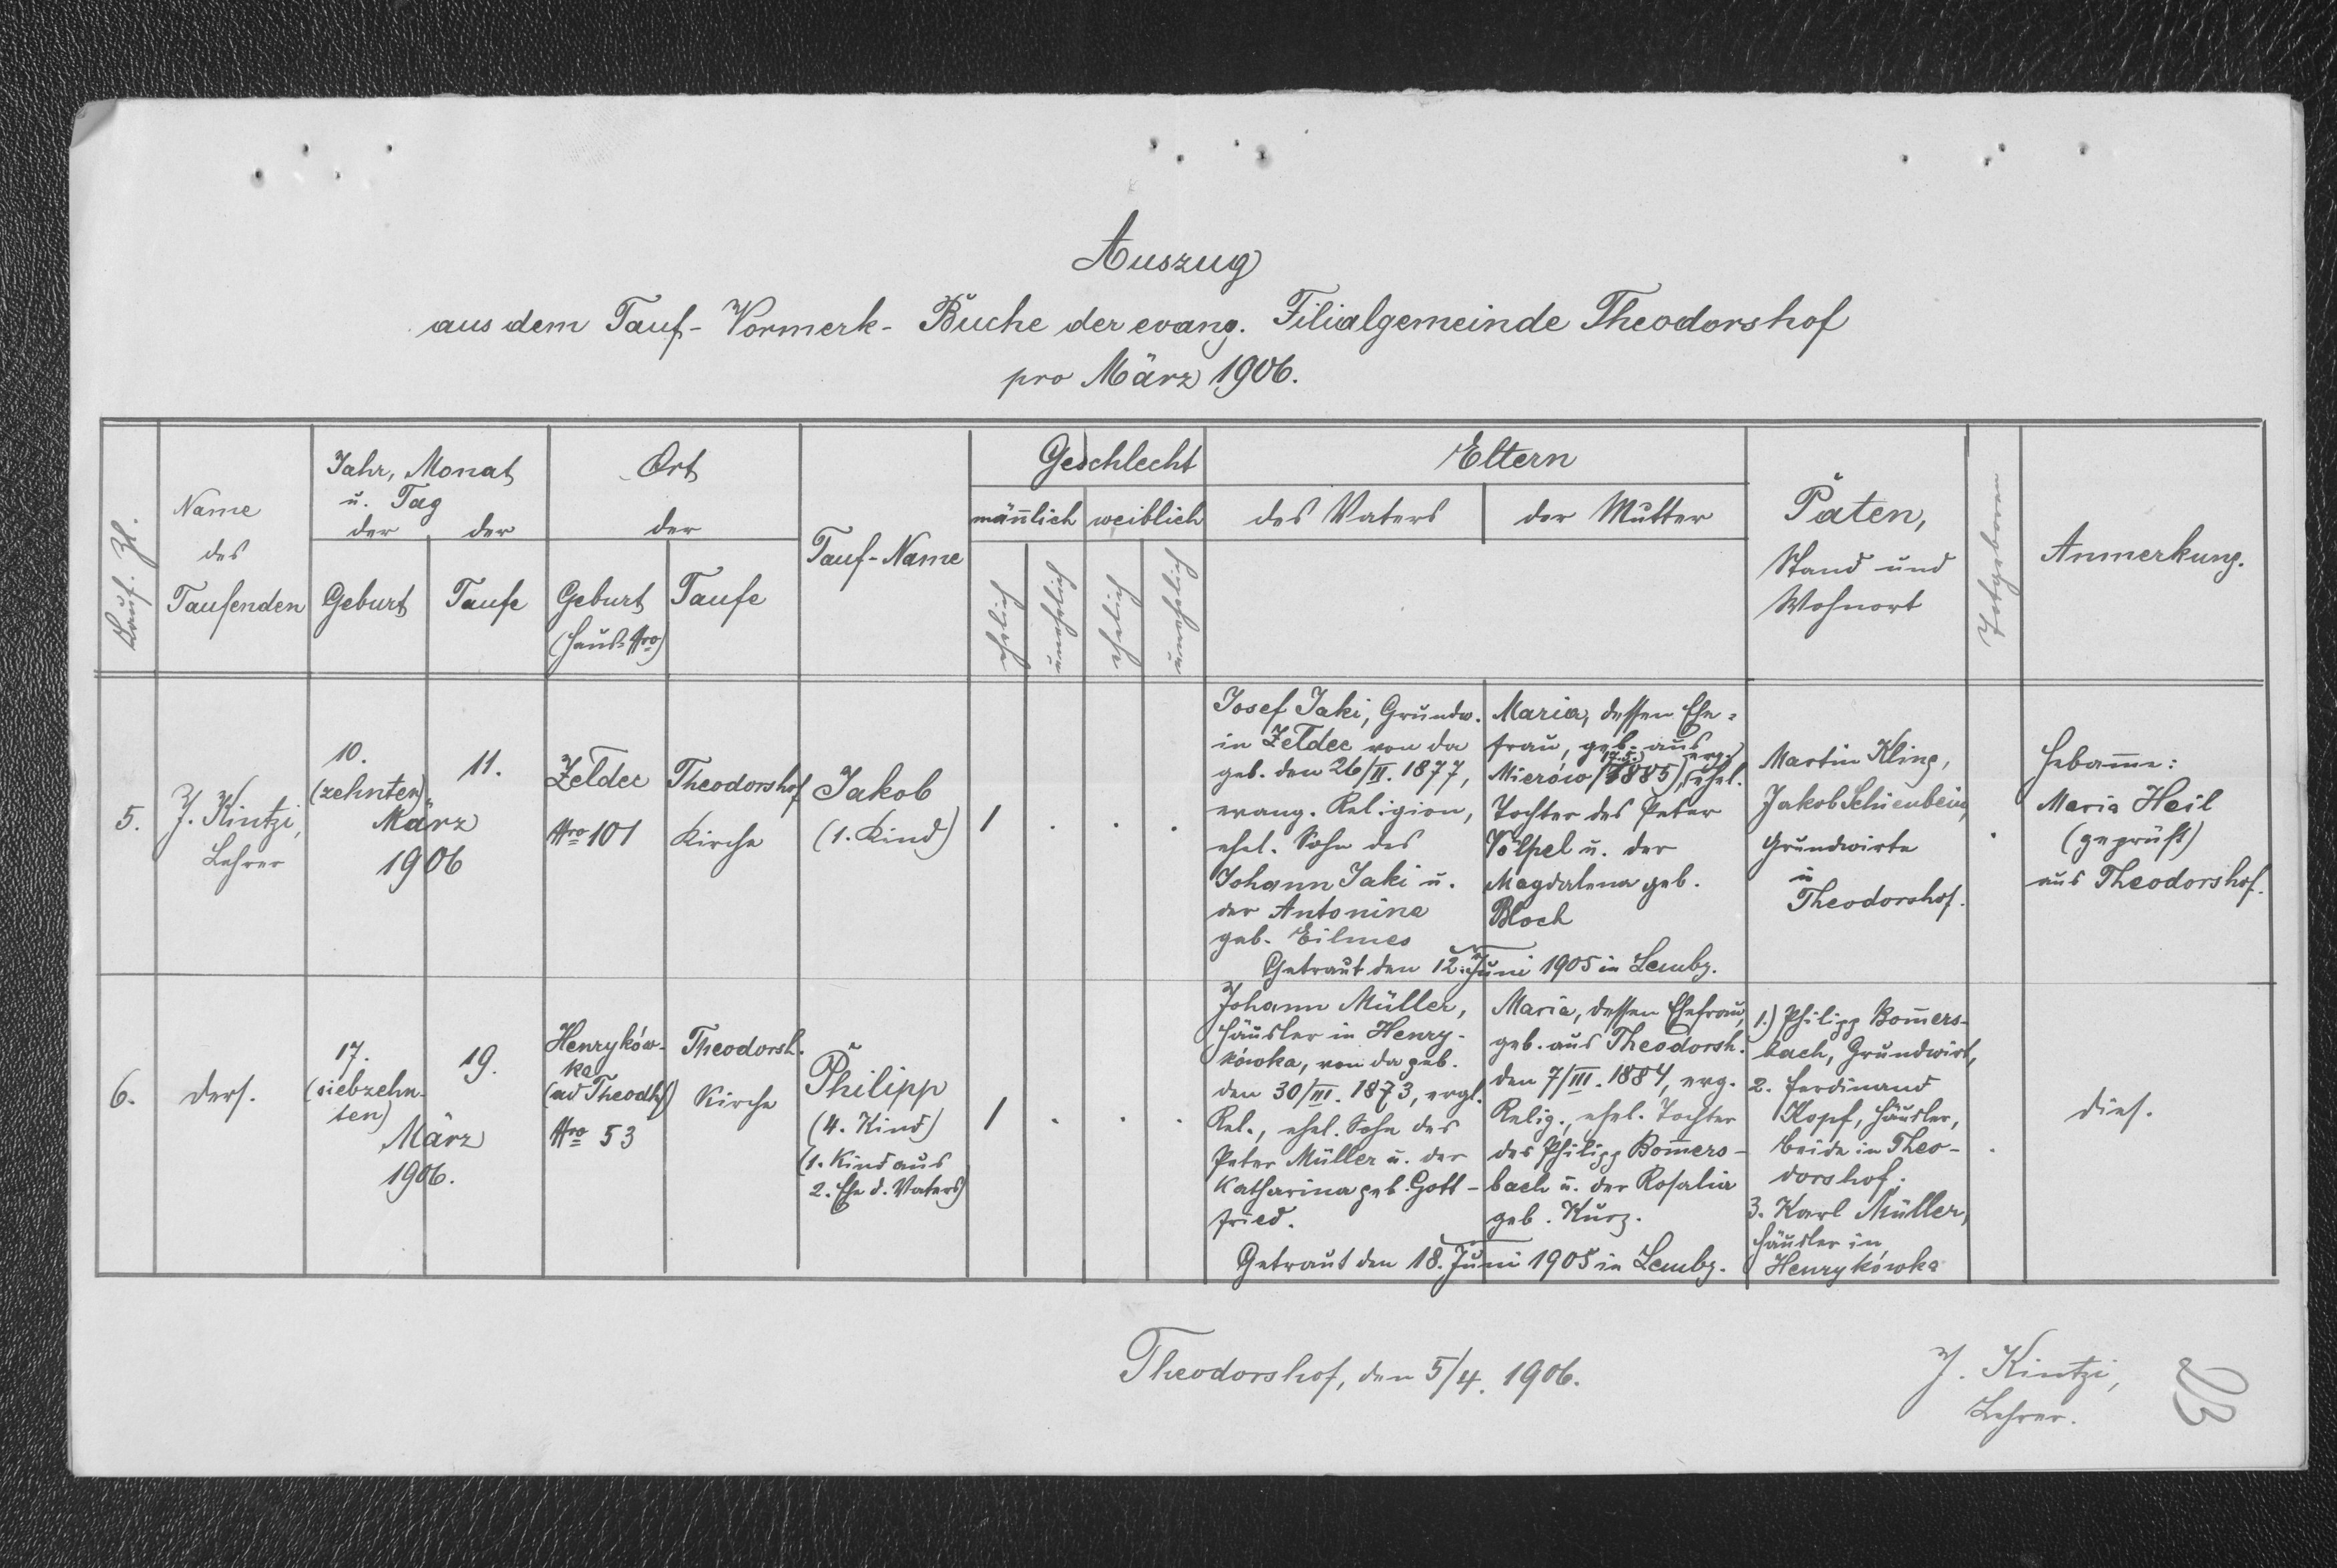 Auszug
aus dem Tauf-Vormerk-Buche der evang. Filialgemeinde Theodorshof
pro März 1906.
Lauf. Zl.
Name
des
Taufenden
Jahr, Monat
u. Tag
der
der
Geburt
Taufe
Ort
der
Geburt
(Haus-Nro)
Taufe
Tauf-Name
Geschlecht
mañlich
weiblich
ehelich
unehelich
ehelich
unehelich
Eltern
des Vaters
der Mutter
Paten,
Stand und
Wohnort
Totgeboren
Anmerkung.
5.
J. Kintzi,
Lehrer
10.
(zehnten)
11.
März
1906
Zeldec
Nro 101
Theodorshof
Kirche
Jakob
(1. Kind)
1
Josef Jaki, Grundw.
in Zeldec von da
geb. den 26/II. 1877,
evang. Religion,
ehel. Sohn des
Johann Jaki u.
der Antonine
geb. Eilmes
Maria, dessen Ehe-
frau, geb. aus
Mierów 1885, evg. ehel.
Tochter des Peter
Völpel u. der
Magdalena geb.
Bloch
Getraut den 12. Juni 1905 in Lembg.
Martin Kling,
Jakob Schienbein,
Grundwirte
in
Theodorshof.
Hebam̄e:
Maria Heil
(geprüft)
aus Theodorshof.
6.
ders.
17.
(siebzehn-
ten)
19.
März
1906.
Henryków-
ka
(ad Theodh)
Nro 53
Theodorsh.
Kirche
Philipp
(4. Kind)
(1. Kind aus
2. Ehe d. Vaters)
1
Johann Müller,
Häusler in Henry-
kówka, von da geb.
den 30/III. 1873, evgl.
Rel., ehel. Sohn des
Peter Müller u. der
Katharina geb. Gott-
fried.
Maria, dessen Ehefrau,
geb. aus Theodorsh.
den 7/III. 1884, evg.
Relig., ehel. Tochter
des Philipp Bom̄ers-
bach u. der Rosalia
geb. Kurz.
Getraut den 18. Juni 1905 in Lembg.
1.) Philipp Bom̄ers-
bach, Grundwirt,
2. Ferdinand
Kopf, Häusler,
beide in Theo-
dorshof;
3. Karl Müller,
Häusler in
Henrykówka
dies.
Theodorshof, den 5/4. 1906.
J. Kintzi,
Lehrer.